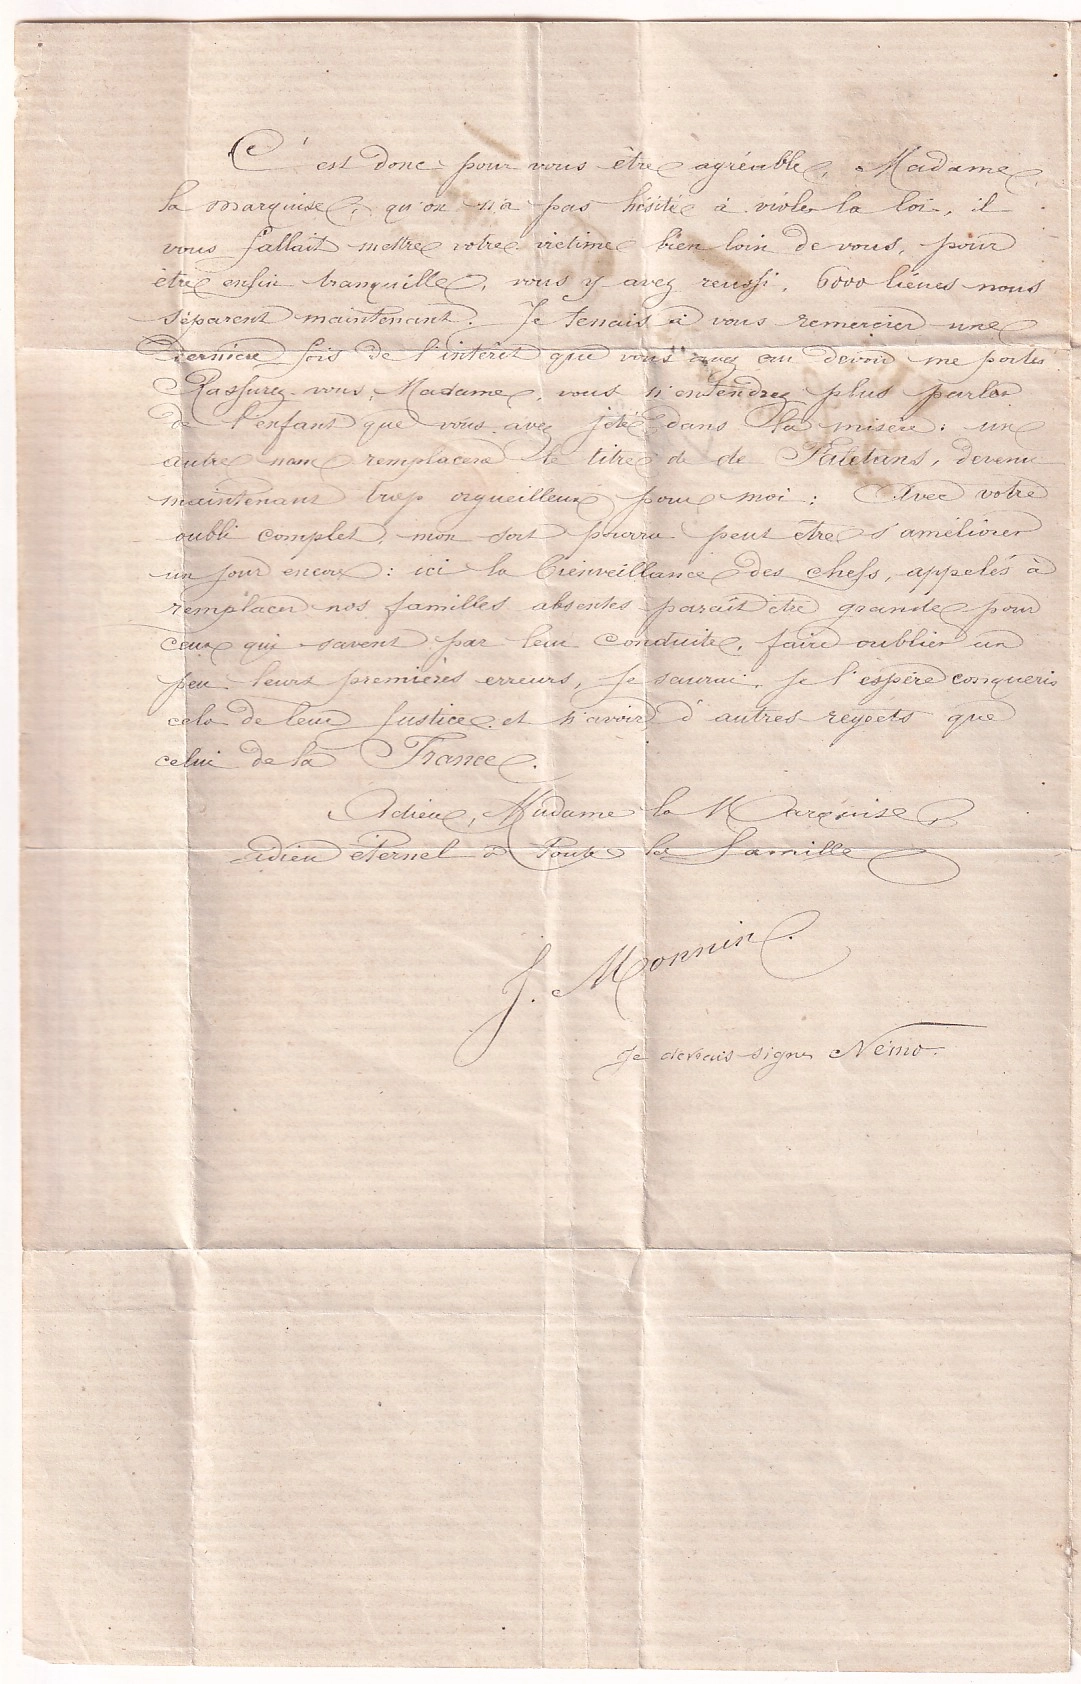 C'est donc pour vous être agréable, Madame
la marquise, qu'on n'a pas hésité à violer la loi, il
vous fallait mettre votre victime bien loin de vous, pour
être enfin tranquille, vous y avez reussi. 6000 lieues nous
séparent maintenant. Je tenais à vous remercier une
dernière fois de l'intérêt que vous avez cru devoir me porter
Rassurez-vous, Madame, vous n'entendrez plus parler
de l'enfant que vous avez jeté dans la misère: un
autre nom remplacera le titre de de, devenu
maintenant trop orgueilleux pour moi: Avec votre
oubli complet, mon sort pourra peut être s'améliorer
un jour encore: ici la bienveillance des chefs, appelés à
remplacer nos familles absentes parait être grande pour
ceux qui savent par leur conduite, faire oublier un
peu leurs premières erreurs, je saurai, je l'espère conquerir
cela de leur justice et n'avoir d'autres regrets que
celui de la France.
Adieu, Madame la Marquise,
adieu éternel à toute la famille
J. Monnin.
Je devrais signer Némo.